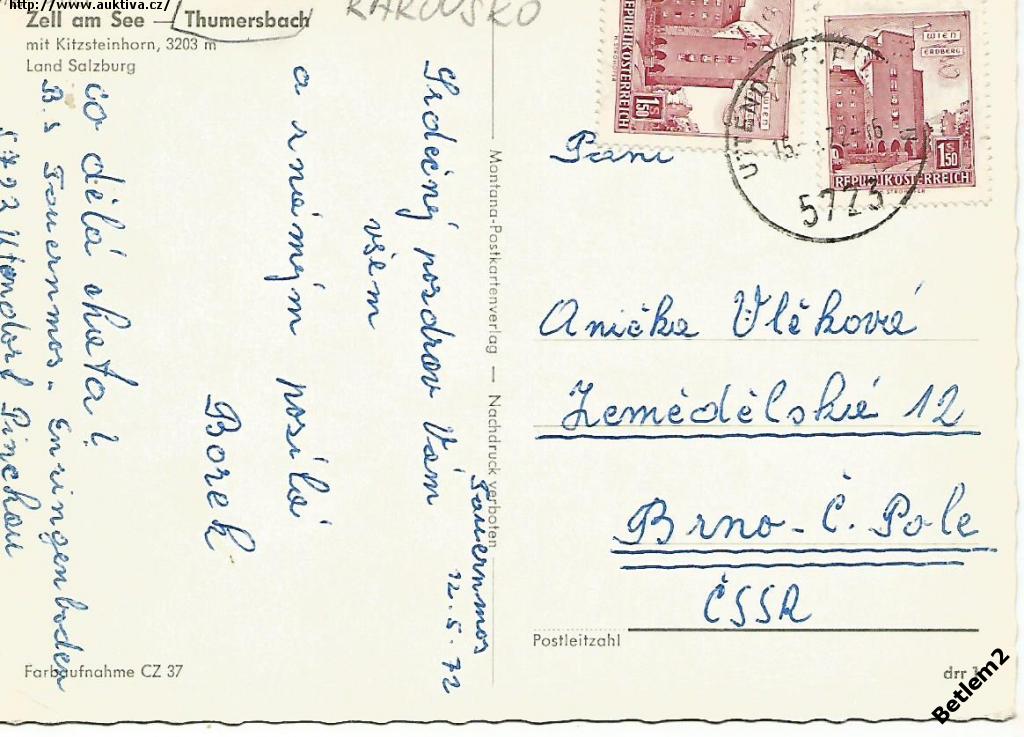 http://www.auktiva.cz/
RAKOUSKO
Zell am See — Thumersbach
mit Kitzsteinhorn, 3203 m
Land Salzburg
Srdečný pozdrav Vám
všem
a známým posílá
Borek
co dělá chata?
Tauernmos
12.5.72
B. s Tauernmos - Enzingenboden
5723 Utendorf Pinckau
Montana-Postkartenverlag — Nachdruck verboten
REPUBLIK ÖSTERREICH
1.50
WIEN
WIEN
ERDBERG
1.50
REPUBLIK ÖSTERREICH
UTTENDORF
5723
Paní
Anička Vlčková
Zemědělská 12
Brno - Č. Pole
ČSSR
Postleitzahl
Farbaufnahme CZ 37
drr
Betlem2